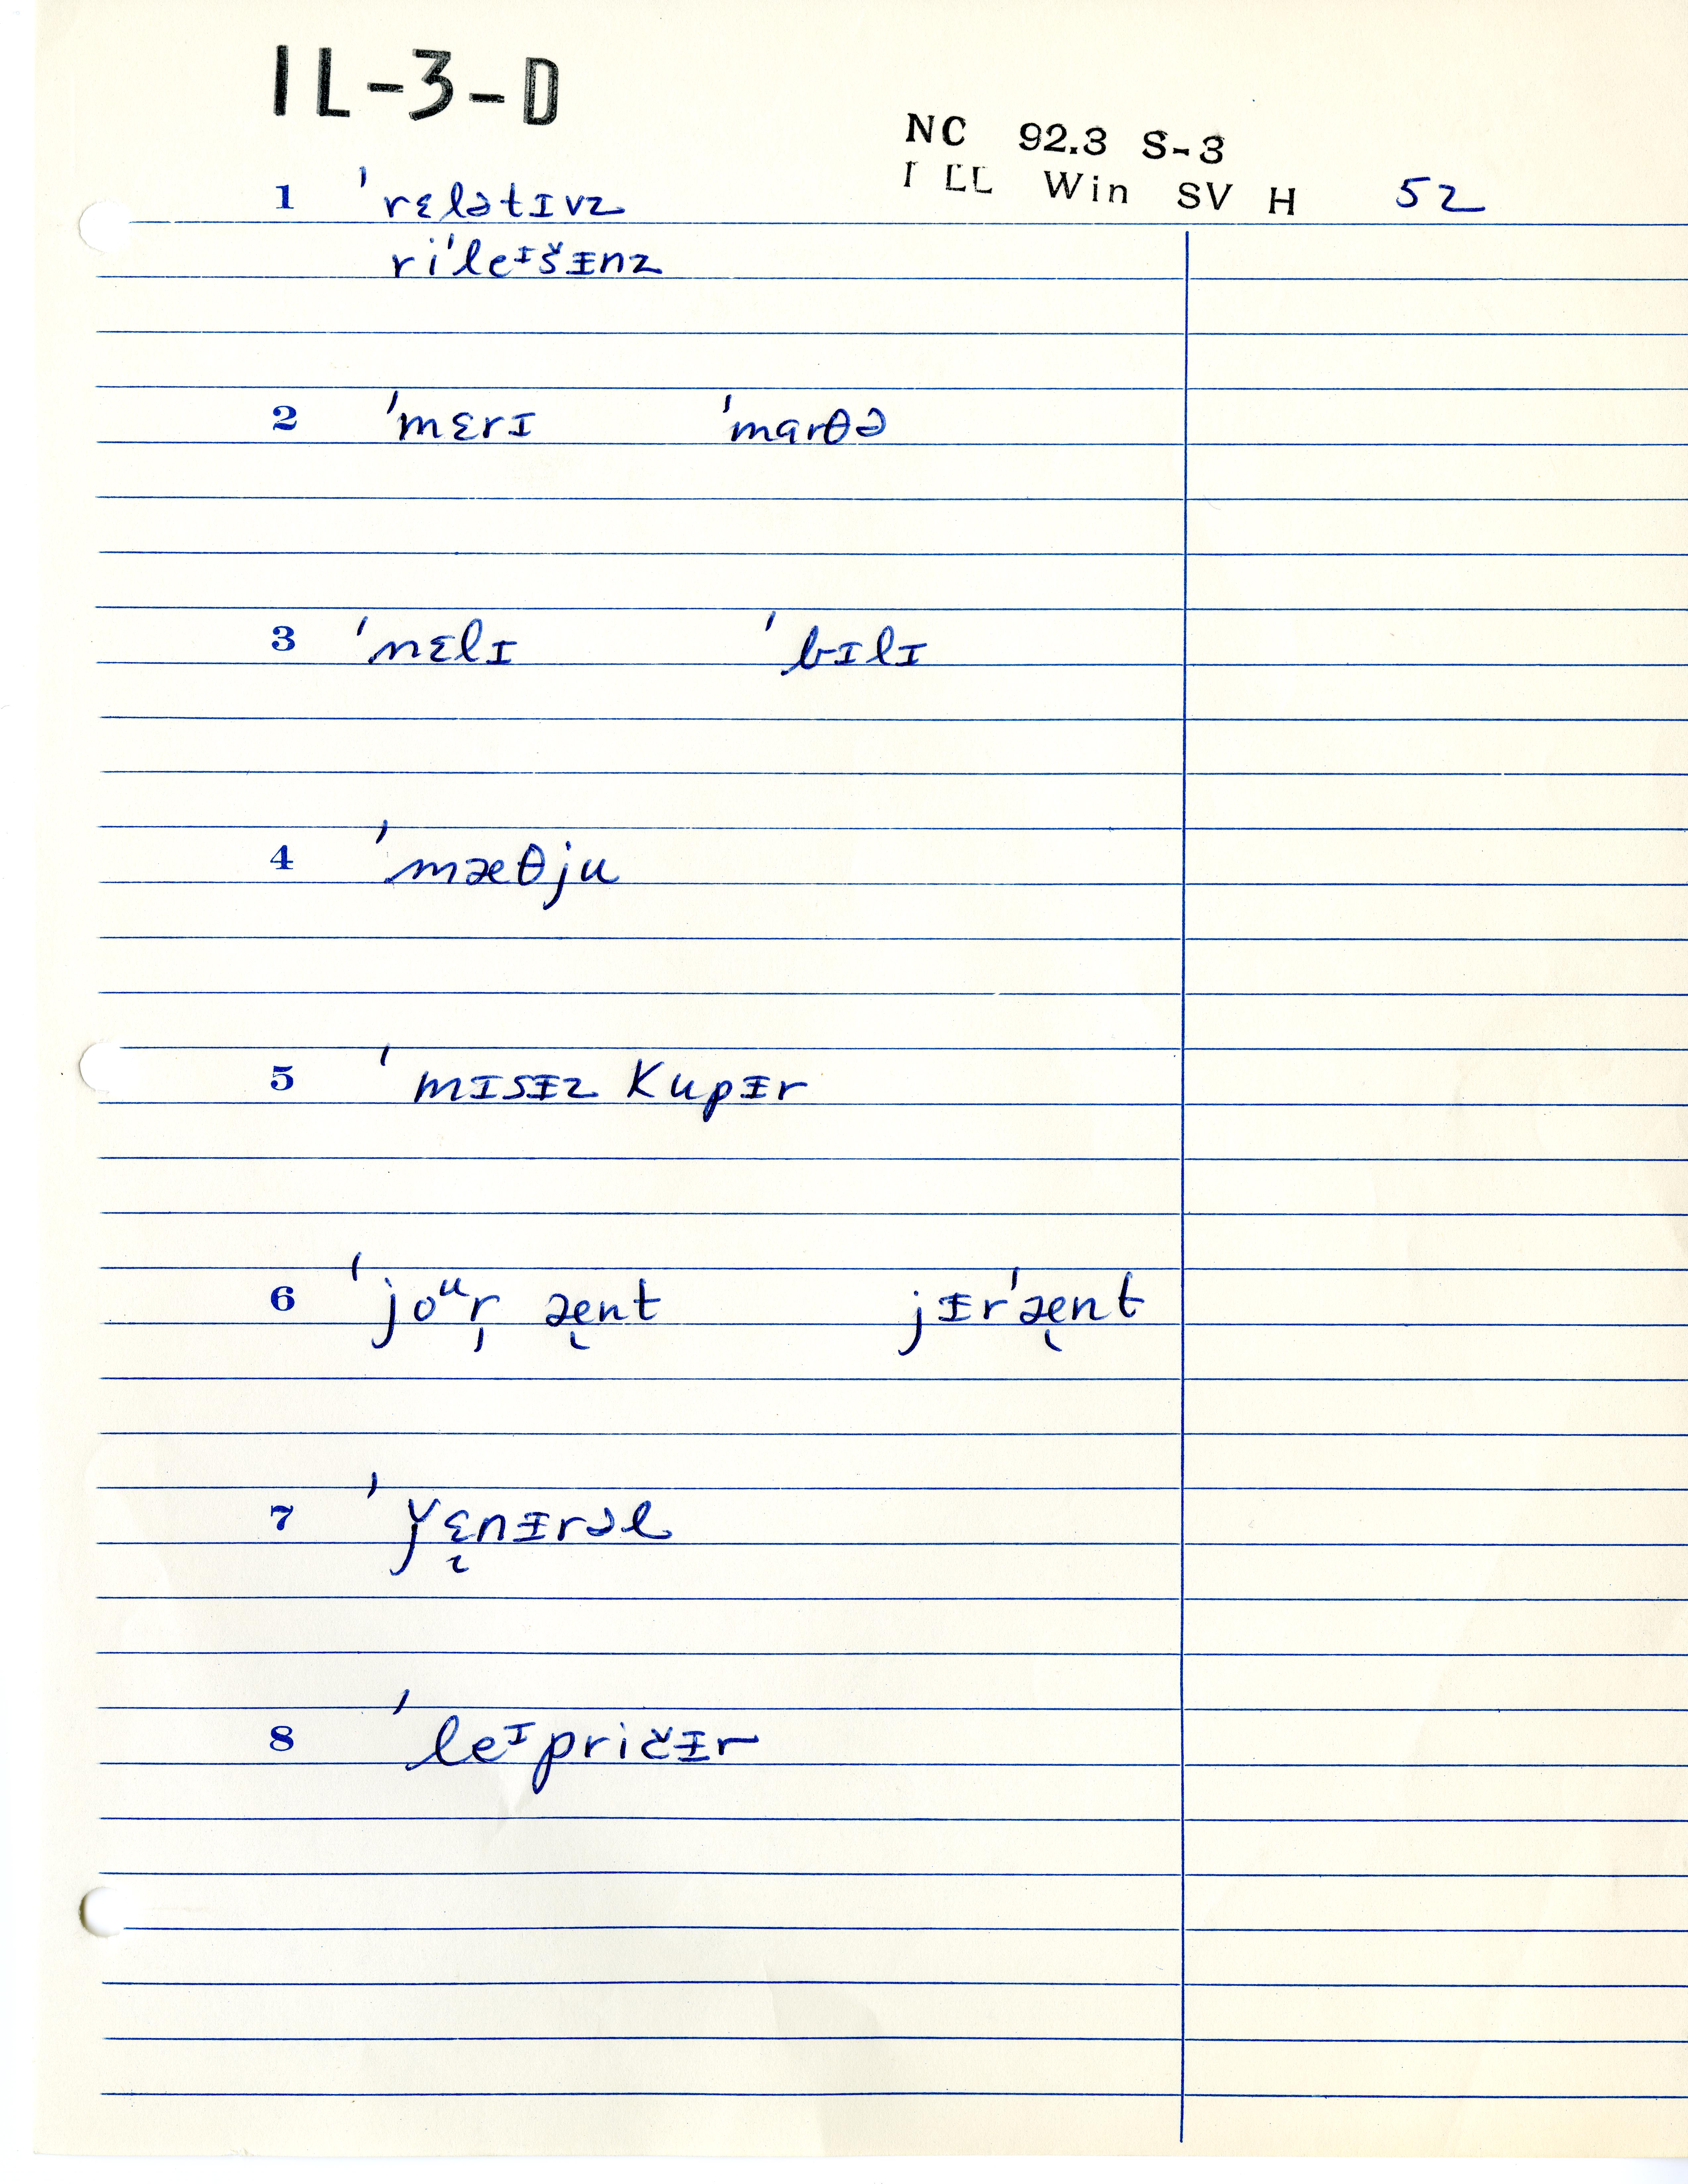 IL-3-D
NC 92.3 S-3
ILL Win SV H 52
1 ˈrɛlətɪvz
riˈleᶦšɪ̵nz
2 ˈmɛrɪ ˈmarθə
3 ˈnɛlɪ ˈbɪlɪ
4 ˈmæθju
5 ˈmɪsɪ̵z kupɪ̵r
6 ˈjoᵘr̩ æ̨nt jɪ̵rˈæ̨nt
7 ˈǰɛ̨nɪ̵rəl
8 ˈleᶦpričɪ̵r